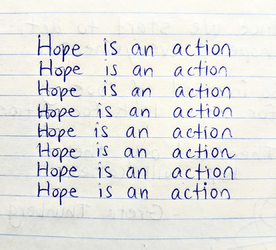 Hope is an action
Hope is an action
Hope is an action
Hope is an action
Hope is an action
Hope is an action
Hope is an action
Hope is an action